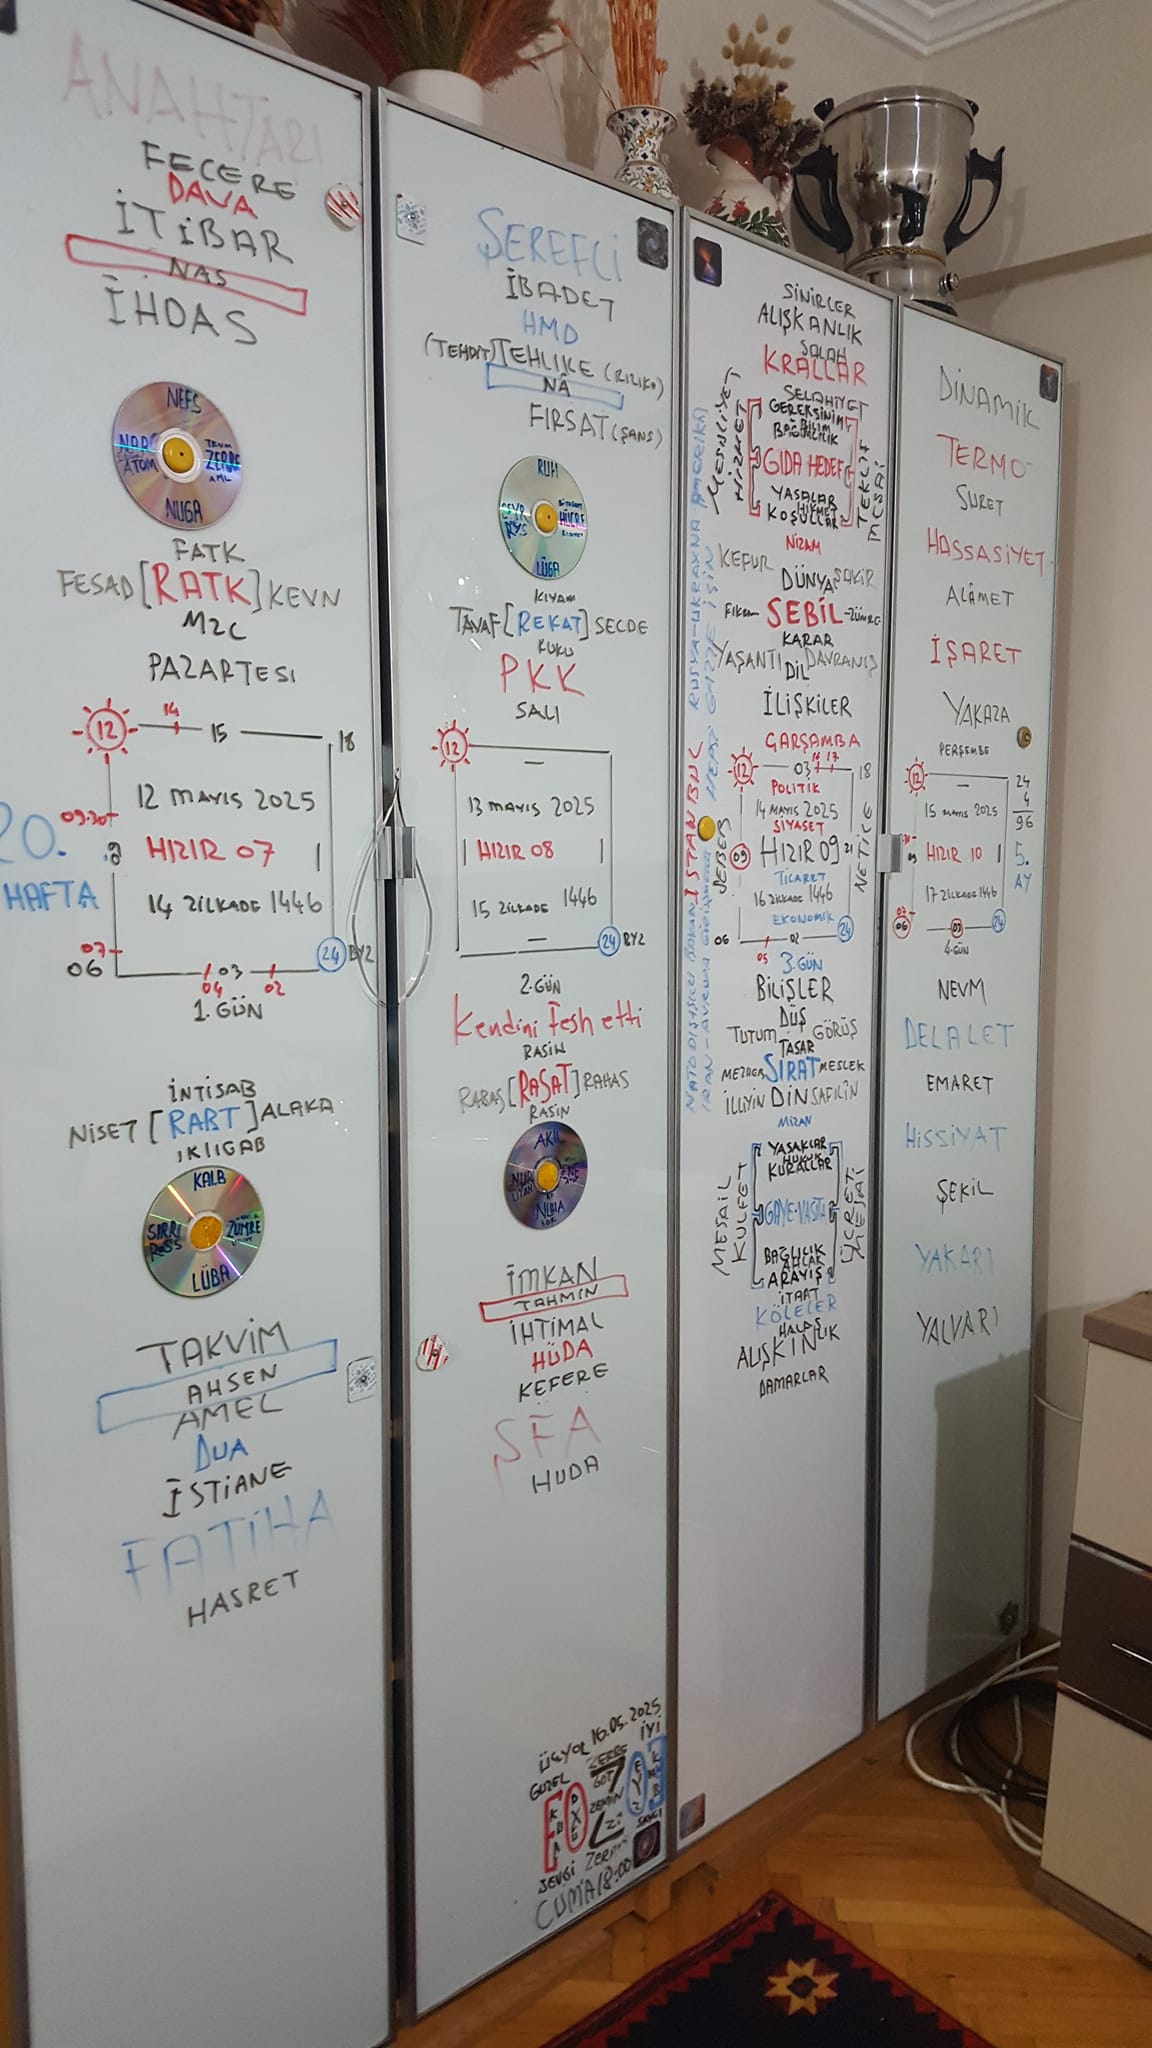 ANAHTARI
FECERE
DAVA
İTİBAR
NAS
İHDAS
NEFS
NAR
ATOM
ZERRE
AML
NUGA
FATK
FESAD [RATK] KEVN
M2C
PAZARTESI
12
14
15
18
12 MAYIS 2025
09.30
HIZIR 07
20.
HAFTA
14 ZİLKADE 1446
07
06
04
03
02
24
BYZ
1. GÜN
İNTİSAB
NİSET [RABT] ALAKA
IKIIGAB
KALB
SIRRI
ZÜMRE
LÜBA
TAKVİM
AHSEN
AMEL
DUA
İSTİANE
FATİHA
HASRET
ŞEREFLİ
İBADET
HMD
(TEHDİT) TEHLİKE (RIZIKO)
NÂ
FIRSAT (ŞANS)
RUH
HÜCRE
LÜGA
KIYAM
TAVAF [REKAT] SECDE
RUKU
PKK
SALI
12
13 MAYIS 2025
HIZIR 08
15 ZİLKADE 1446
24
BYZ
2. GÜN
Kendini Fesh etti
RASIN
RABAS [RASAT] RAHAS
RASIN
AKIL
NUR
NUHA
İMKAN
TAHMIN
İHTİMAL
HÜDA
KEFERE
SFA
HUDA
ÜÇYOL 16.05.2025
GÜZEL
İYİ
ZERRE
ZEMİN
SEVGİ
CUMA 18:00
SİNİRLER
ALIŞKANLIK
SALAH
KRALLAR
SELAHİYET
MESULİYET
HİZMET
GEREKSİNİM
BİLİM
BAĞIMLILIK
GIDA HEDEF
YASALAR
HİKMET
KOŞULLAR
TEKLİF
MESAİ
NİZAM
KEFUR
DÜNYA
ŞAKİR
SEBİL
ZÜMRE
KARAR
YAŞANTI
DİL
DAVRANIŞ
İLİŞKİLER
ÇARŞAMBA
12
03
17
18
POLİTİK
14 MAYIS 2025
SİYASET
09
HIZIR 09
21
TİCARET
16 ZİLKADE 1446
EKONOMİK
06
05
02
24
SEBEB
NETİCE
3. GÜN
BİLİŞLER
DÜŞ
TUTUM
GÖRÜŞ
TASAR
MEZHEB SIRAT MESLEK
İLLİYİN DİN SAFİLİN
MİZAN
MESAİL
KÜLFET
YASAKLAR
HUKUK
KURALLAR
GAYE-VASITA
BAĞLILIK
AHLAK
ARAYIŞ
ÜCRET
İTAAT
KÖLELER
HALAS
ALIŞKINLIK
DAMARLAR
DİNAMİK
TERMO
SURET
HASSASİYET
ALÂMET
İŞARET
YAKAZA
PERŞEMBE
12
24
4
96
15 MAYIS 2025
HIZIR 10
5.
AY
17 ZİLKADE 1446
07
06
03
24
4. GÜN
NEVM
DELALET
EMARET
HİSSİYAT
ŞEKİL
YAKARI
YALVARI